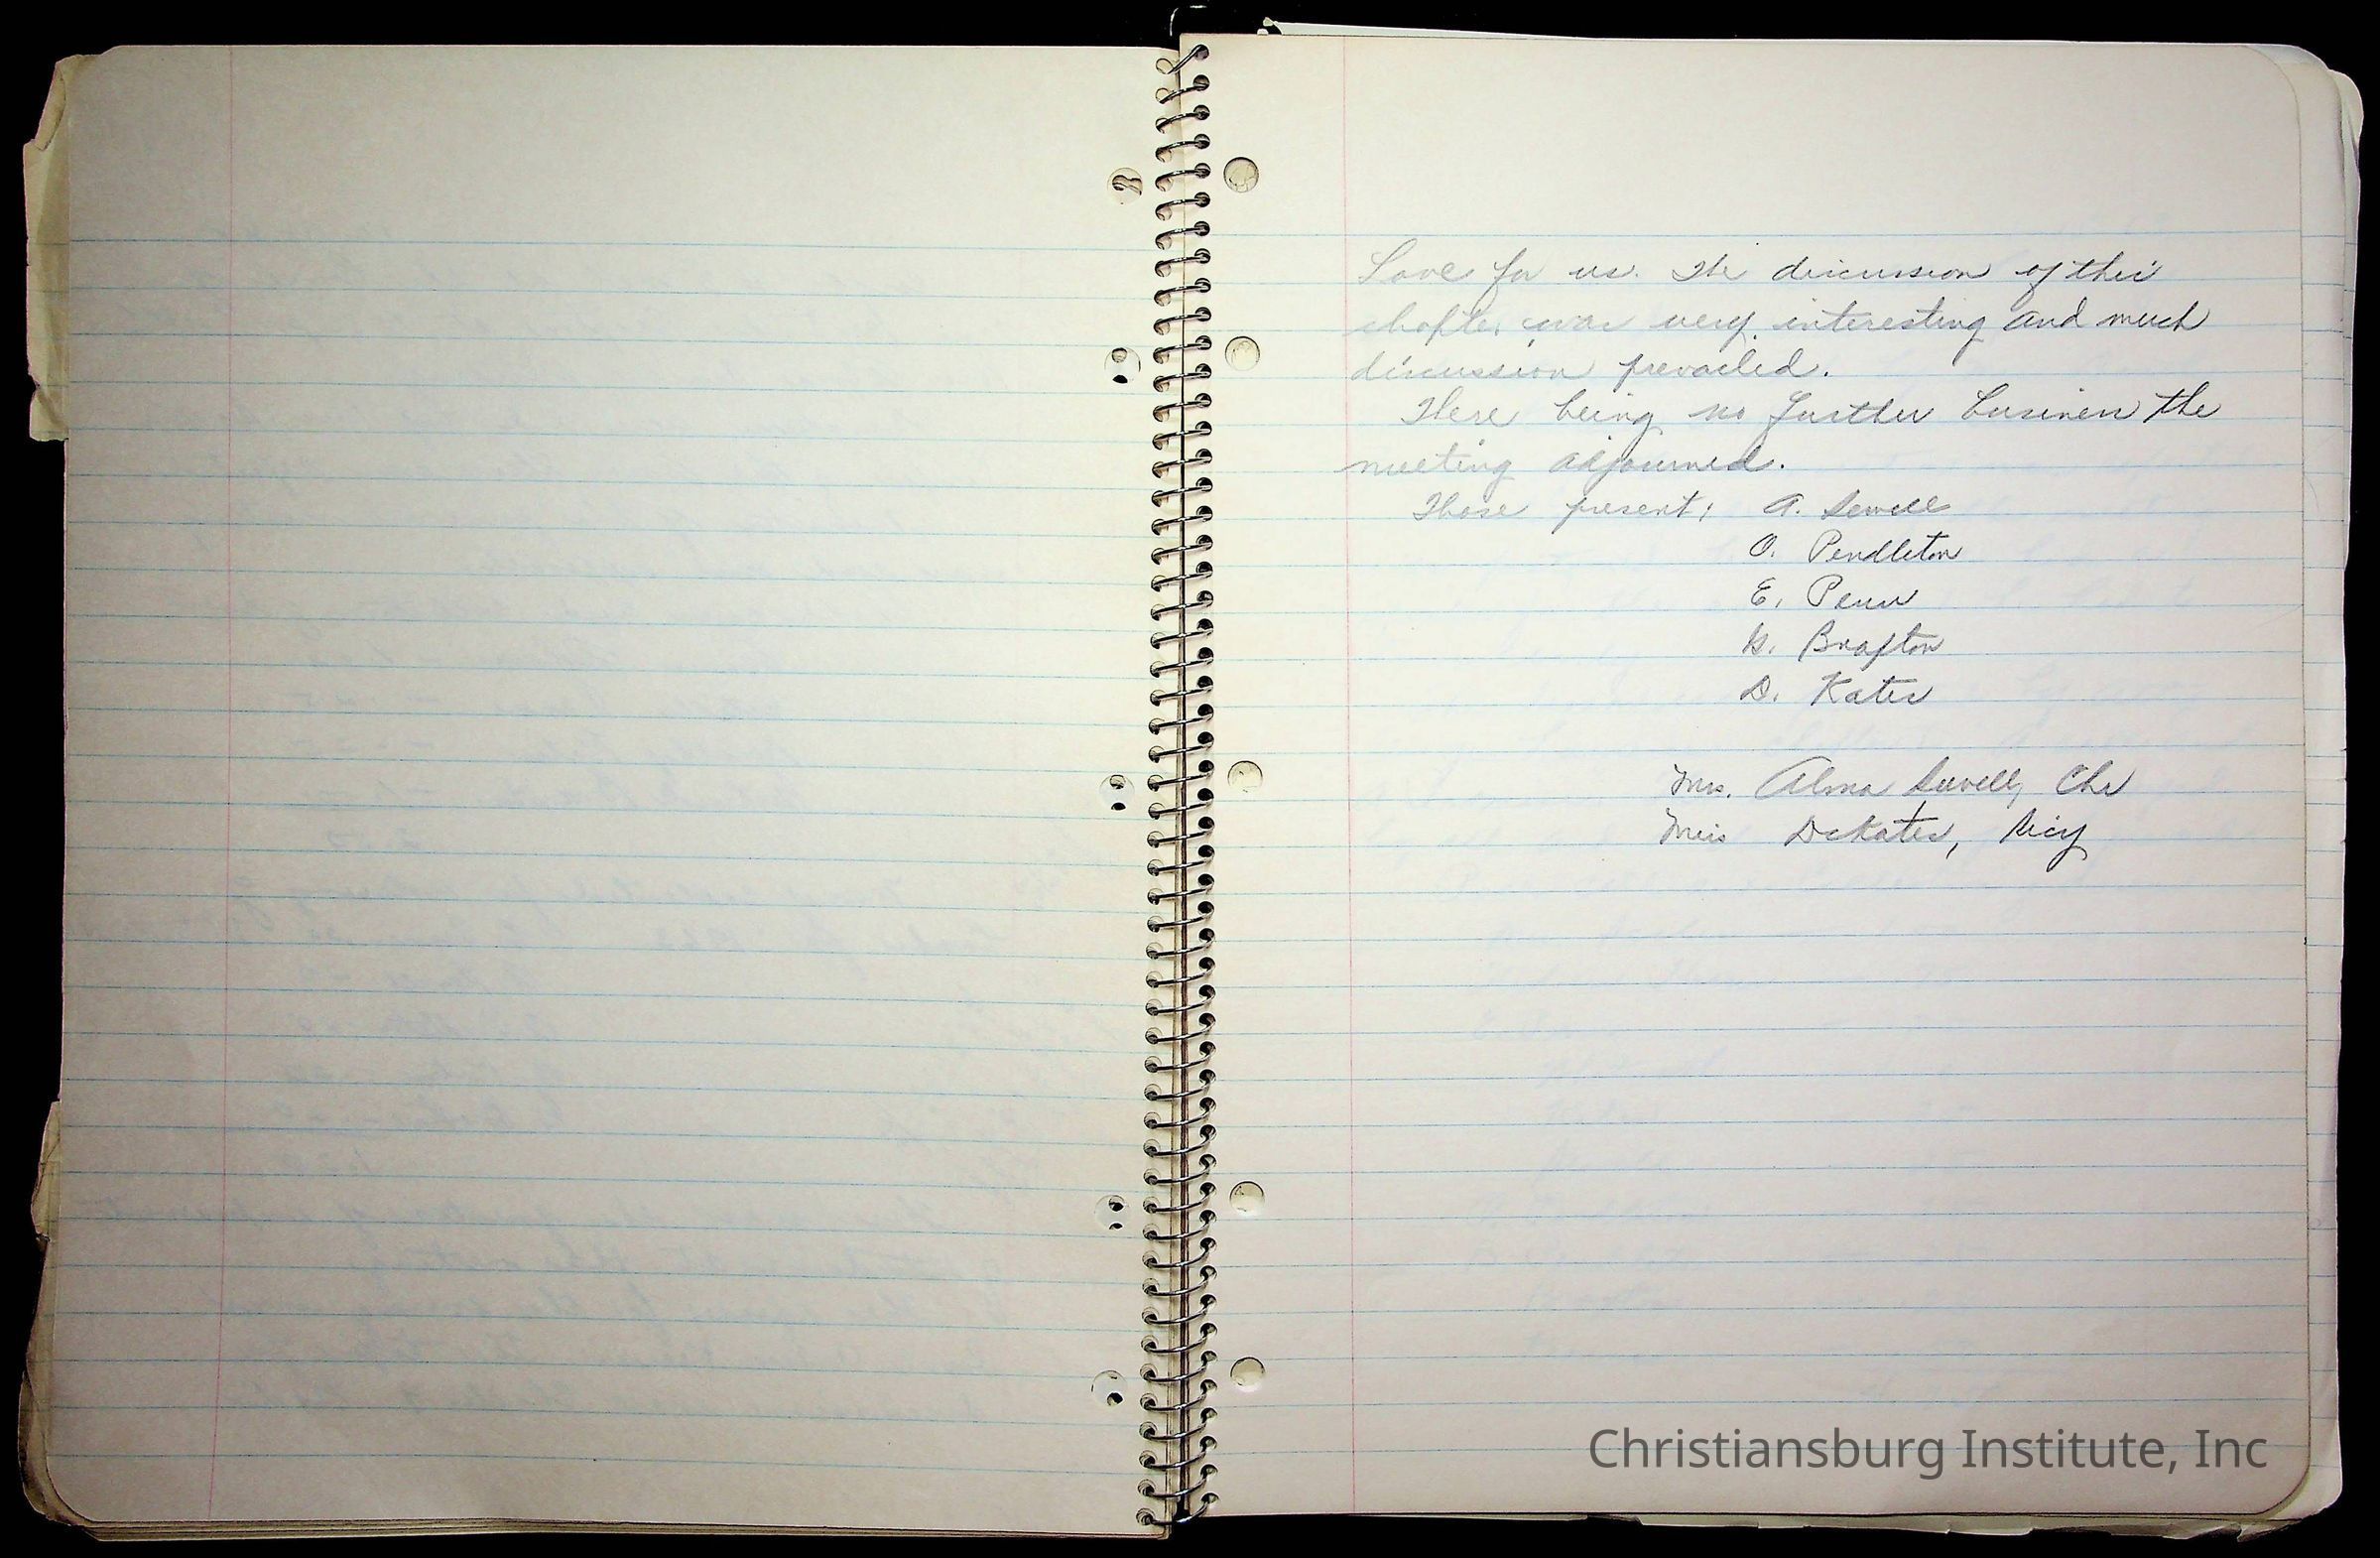 Love for us. The discussion of this
chapter was very interesting and much
discussion prevailed.
There being no further business the
meeting adjourned.
Those present; A. Sewell
O. Pendleton
E. Penn
Brafton
D. Kates
Mrs. Alma Sewell, Ch
Miss D Kates, Secy
Christiansburg Institute, Inc